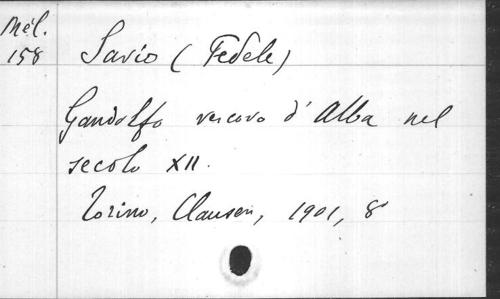 Mél.
158
Savio (Fedele)
Gandolfo vescovo d'Alba nel
secolo XII.
Torino, Clausen, 1901, 8°